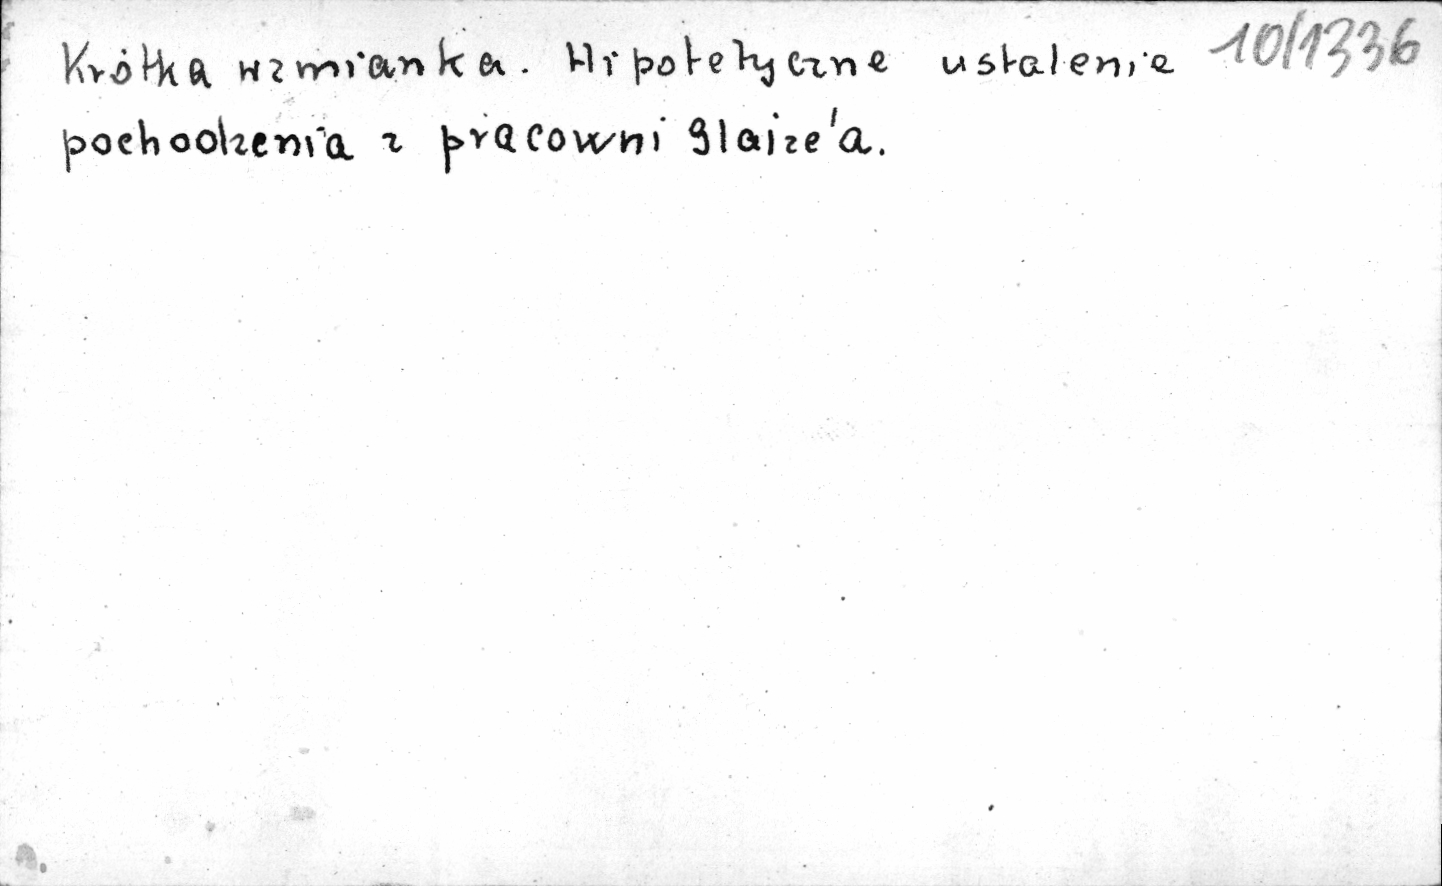 Krótka wzmianka. Hipotetyczne ustalenie 10/1336
pochodzenia z pracowni Glaize'a.